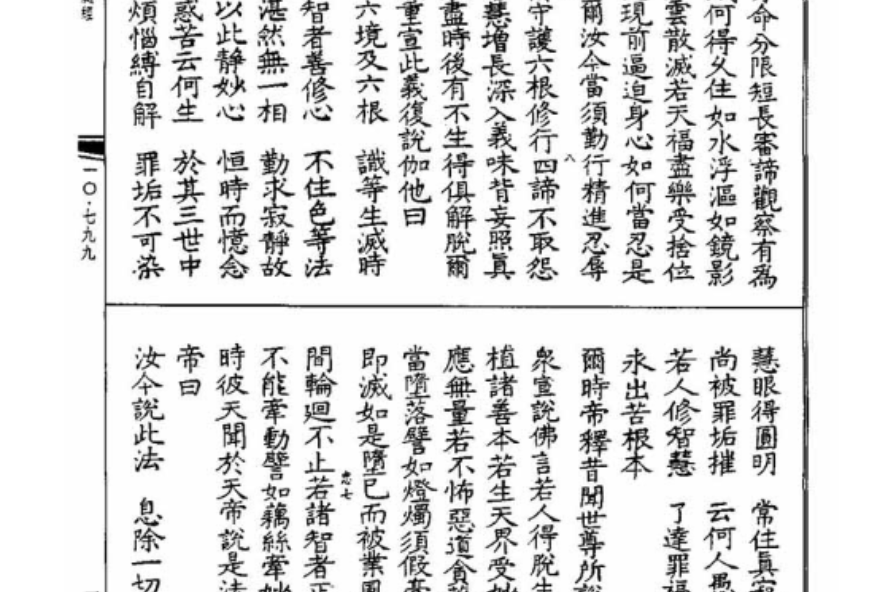 命分限短長審諦觀察有為
何得久住如水浮漚如鏡影
雲散滅若天福盡樂受捨位
現前逼迫身心如何當忍是
爾汝今當須勤行精進忍辱
八
守護六根修行四諦不取怨
慧增長深入義味背妄照真
盡時後有不生得俱解脫爾
重宣此義復說伽他曰
六境及六根　識等生滅時
智者善修心　不住色等法
湛然無一相　勤求寂靜故
以此靜妙心　恒時而憶念
惑苦云何生　於其三世中
煩惱縛自解　罪垢不可染
一〇·七九九
慧眼得圓明　常住真
尚被罪垢摧　云何人愚
若人修智慧　了達罪福
永出苦根本
爾時帝釋昔聞世尊所說
衆宣說佛言若人得脫生
植諸善本若生天界受
應無量若不怖惡道貪
當墮落譬如燈燭須假
即滅如是墮已而被業風
忠七
間輪迴不止若諸智者正
不能牽動譬如藕絲牽
時彼天聞於天帝說是法
帝曰
汝今說此法　息除一切